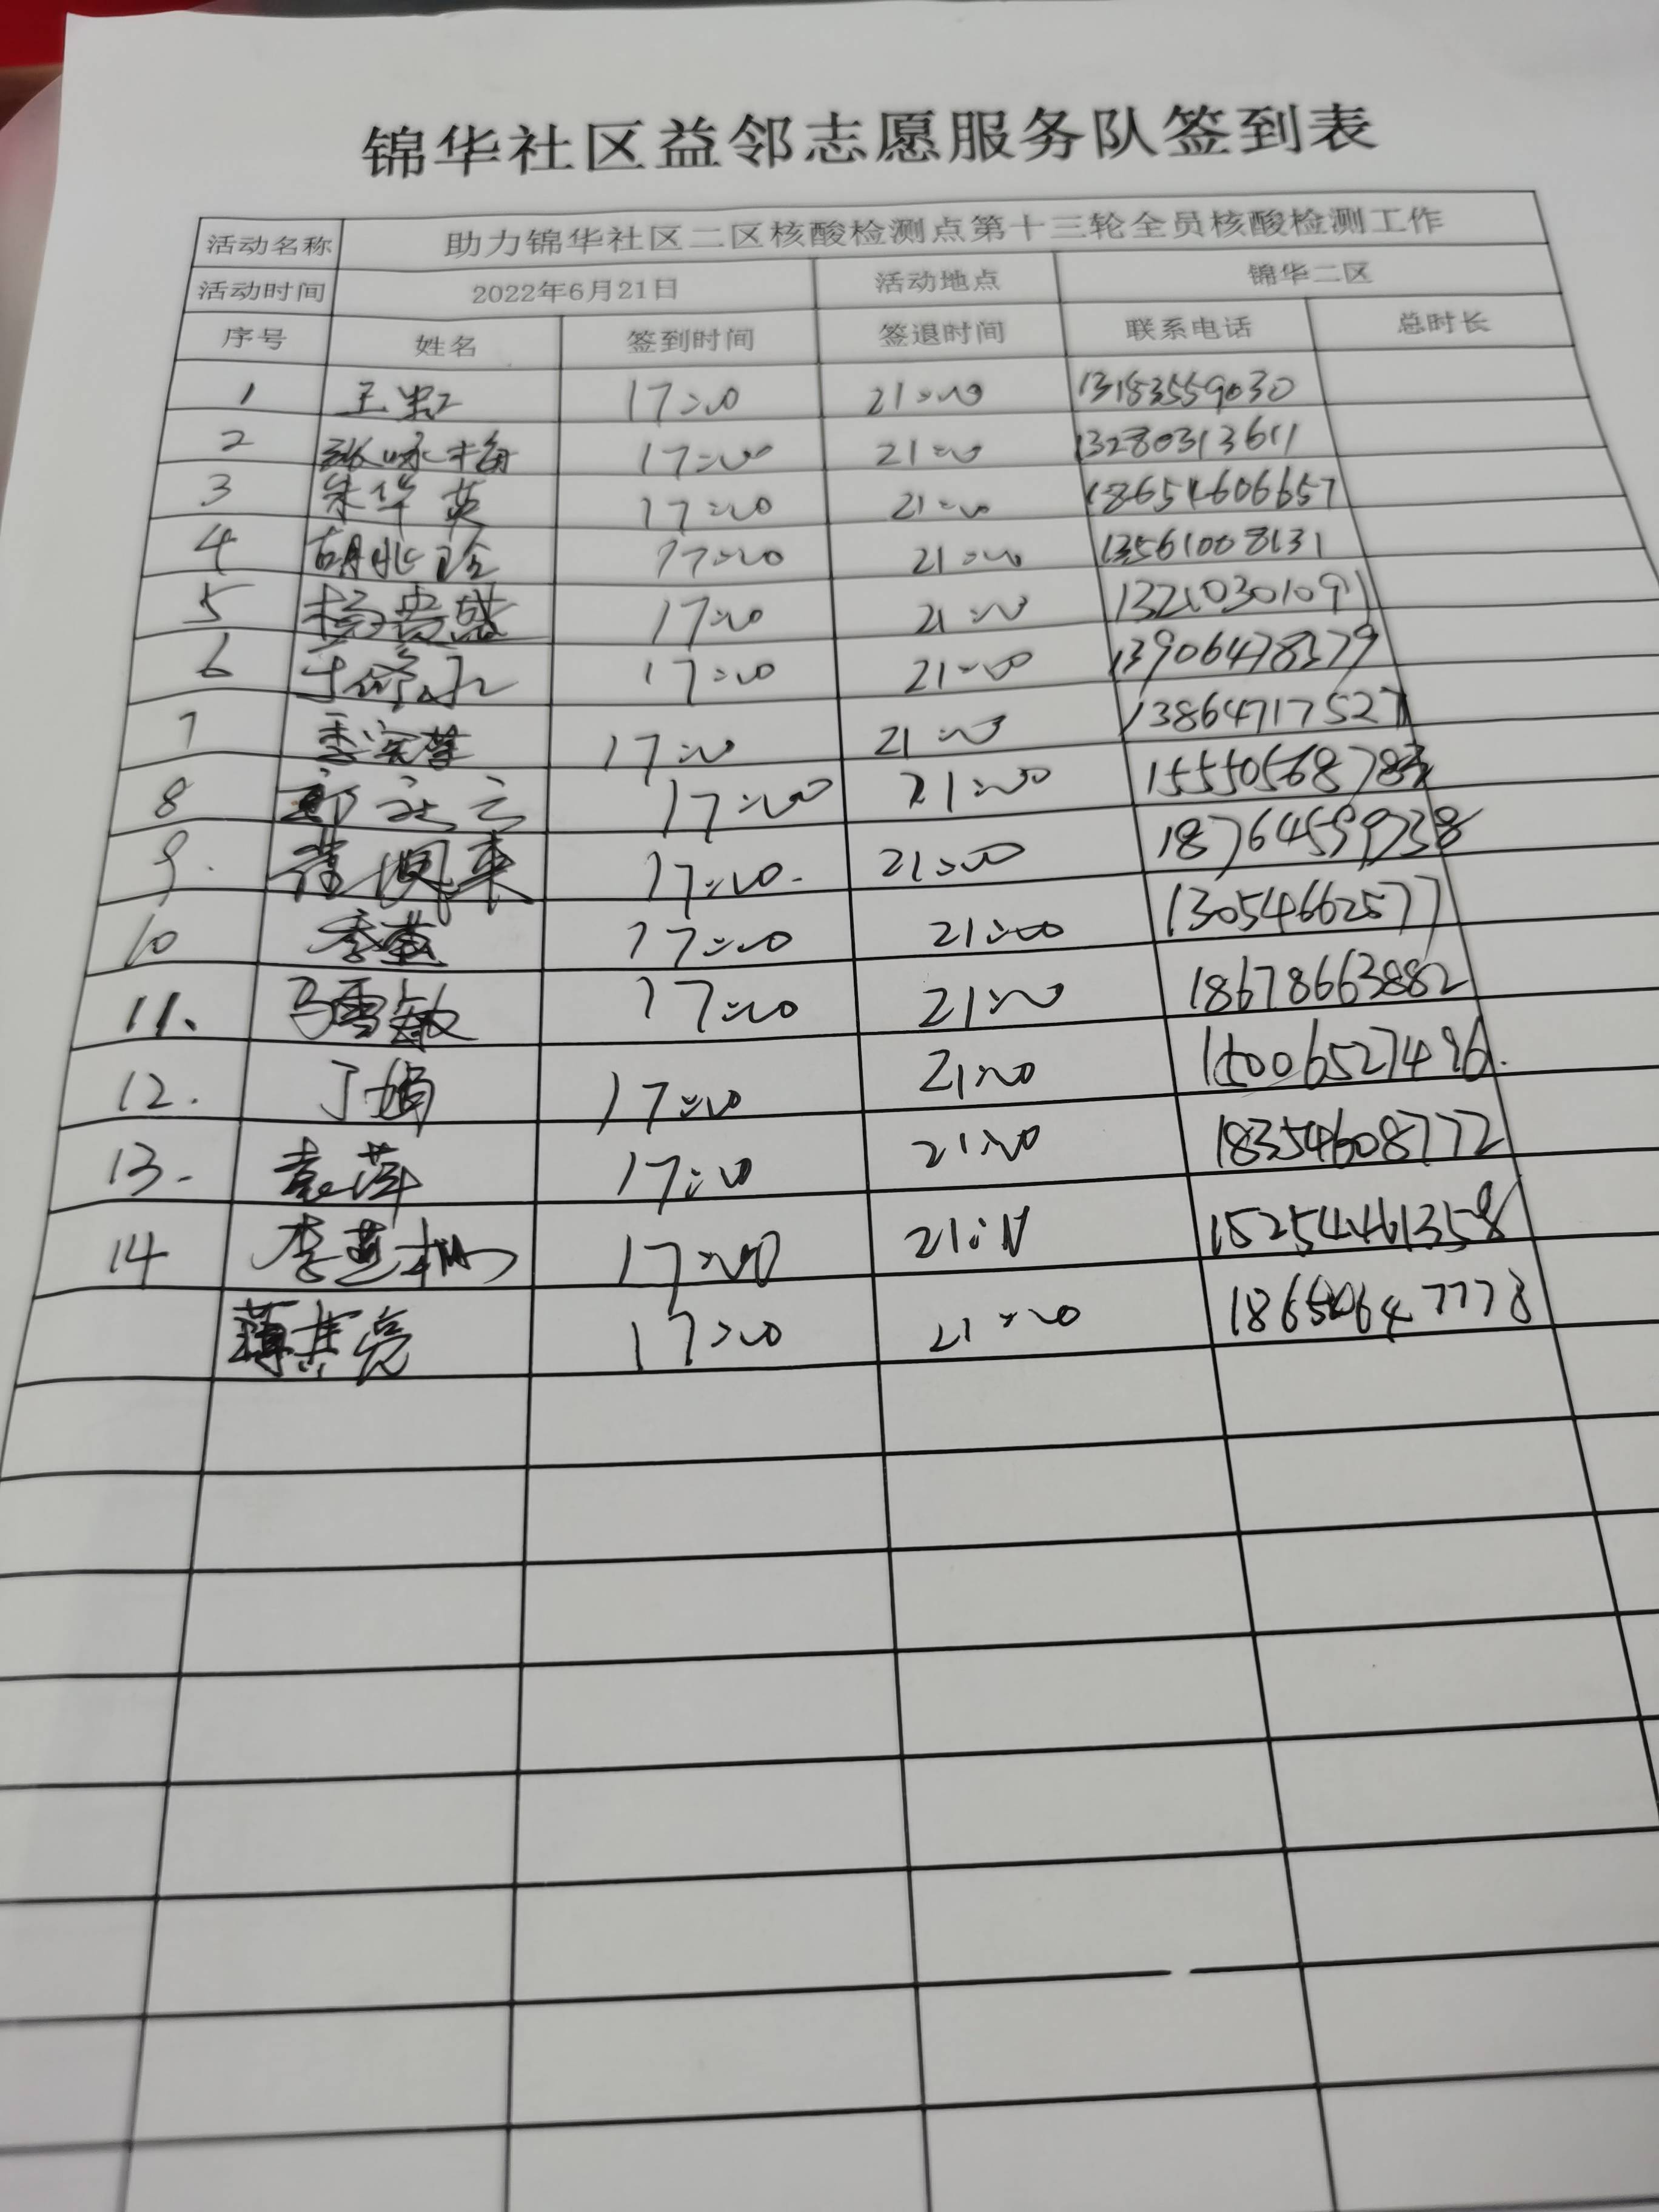 锦华社区益邻志愿服务队签到表
活动名称 助力锦华社区二区核酸检测点第十三轮全员核酸检测工作
活动时间 2022年6月21日 活动地点 锦华二区
序号 姓名 签到时间 签退时间 联系电话 总时长
1 王虹 17:00 21:00 13183559030
2 张咏梅 17:00 21:00 13280313611
3 朱华英 17:00 21:00 18654606657
4 胡兆玲 17:00 21:00 13561008131
5 杨贵盛 17:00 21:00
6 17:00 21:00
7 季宗莲 17:00 21:00 13864717527
8 郭 云 17:00 21:00
9. 17:00. 21:00
10 17:00 21:00 13054662577
11. 马雪敏 17:00 21:00 18678663882
12. 丁娟 17:00 21:00 15006527496.
13. 袁萍 17:00 21:00 18354608772
14 李 17:00 15254461358
薄其亮 17:00 21:00